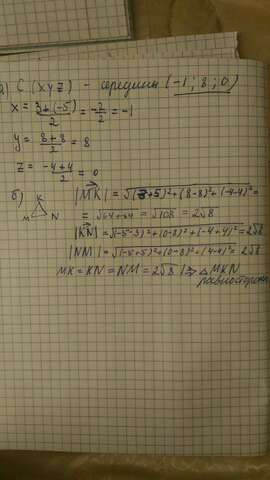 а) C (x y z) - середина (-1; 8; 0)
x = (3+(-5))/2 = -2/2 = -1
y = (8+8)/2 = 8
z = (-4+4)/2 = 0
б) |MK| = √((3+5)²+(8-8)²+(-4-4)²) =
K
M N
= √(64+64) = √108 = 2√8
|KN| = √((-5-3)²+(0-8)²+(-4+4)²) = 2√8
|NM| = √((-5+5)²+(0-8)²+(-4-4)²) = 2√8
MK = KN = NM = 2√8 | ⇒ △ MKN
равносторон